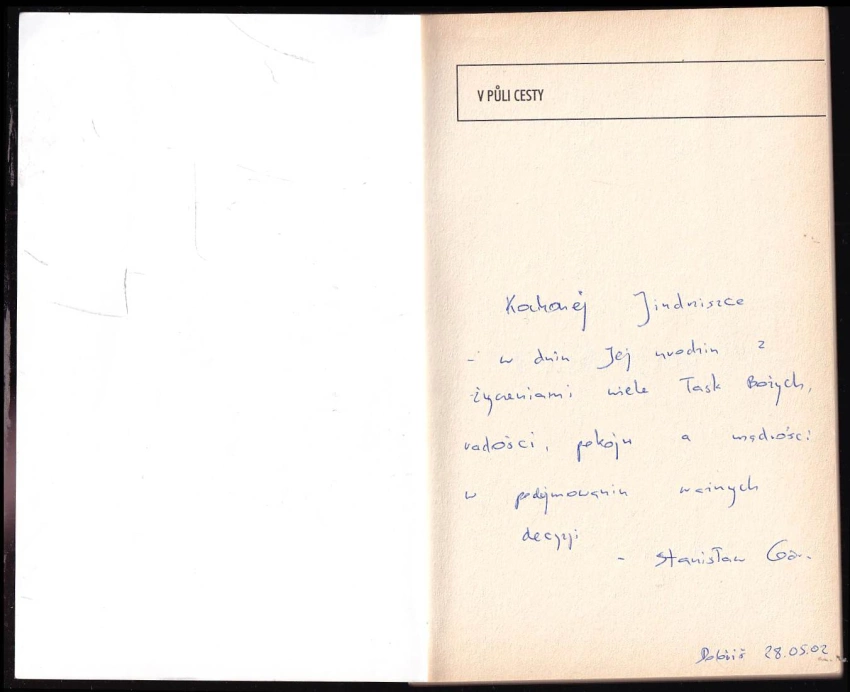 V PŮLI CESTY
Kochanej Jindriszce
- w dniu Jej urodzin z
życzeniami wiele Łask Bożych,
radości, pokoju a mądrości
w podejmowaniu ważnych
decyzji
- Stanisław
28.05.02